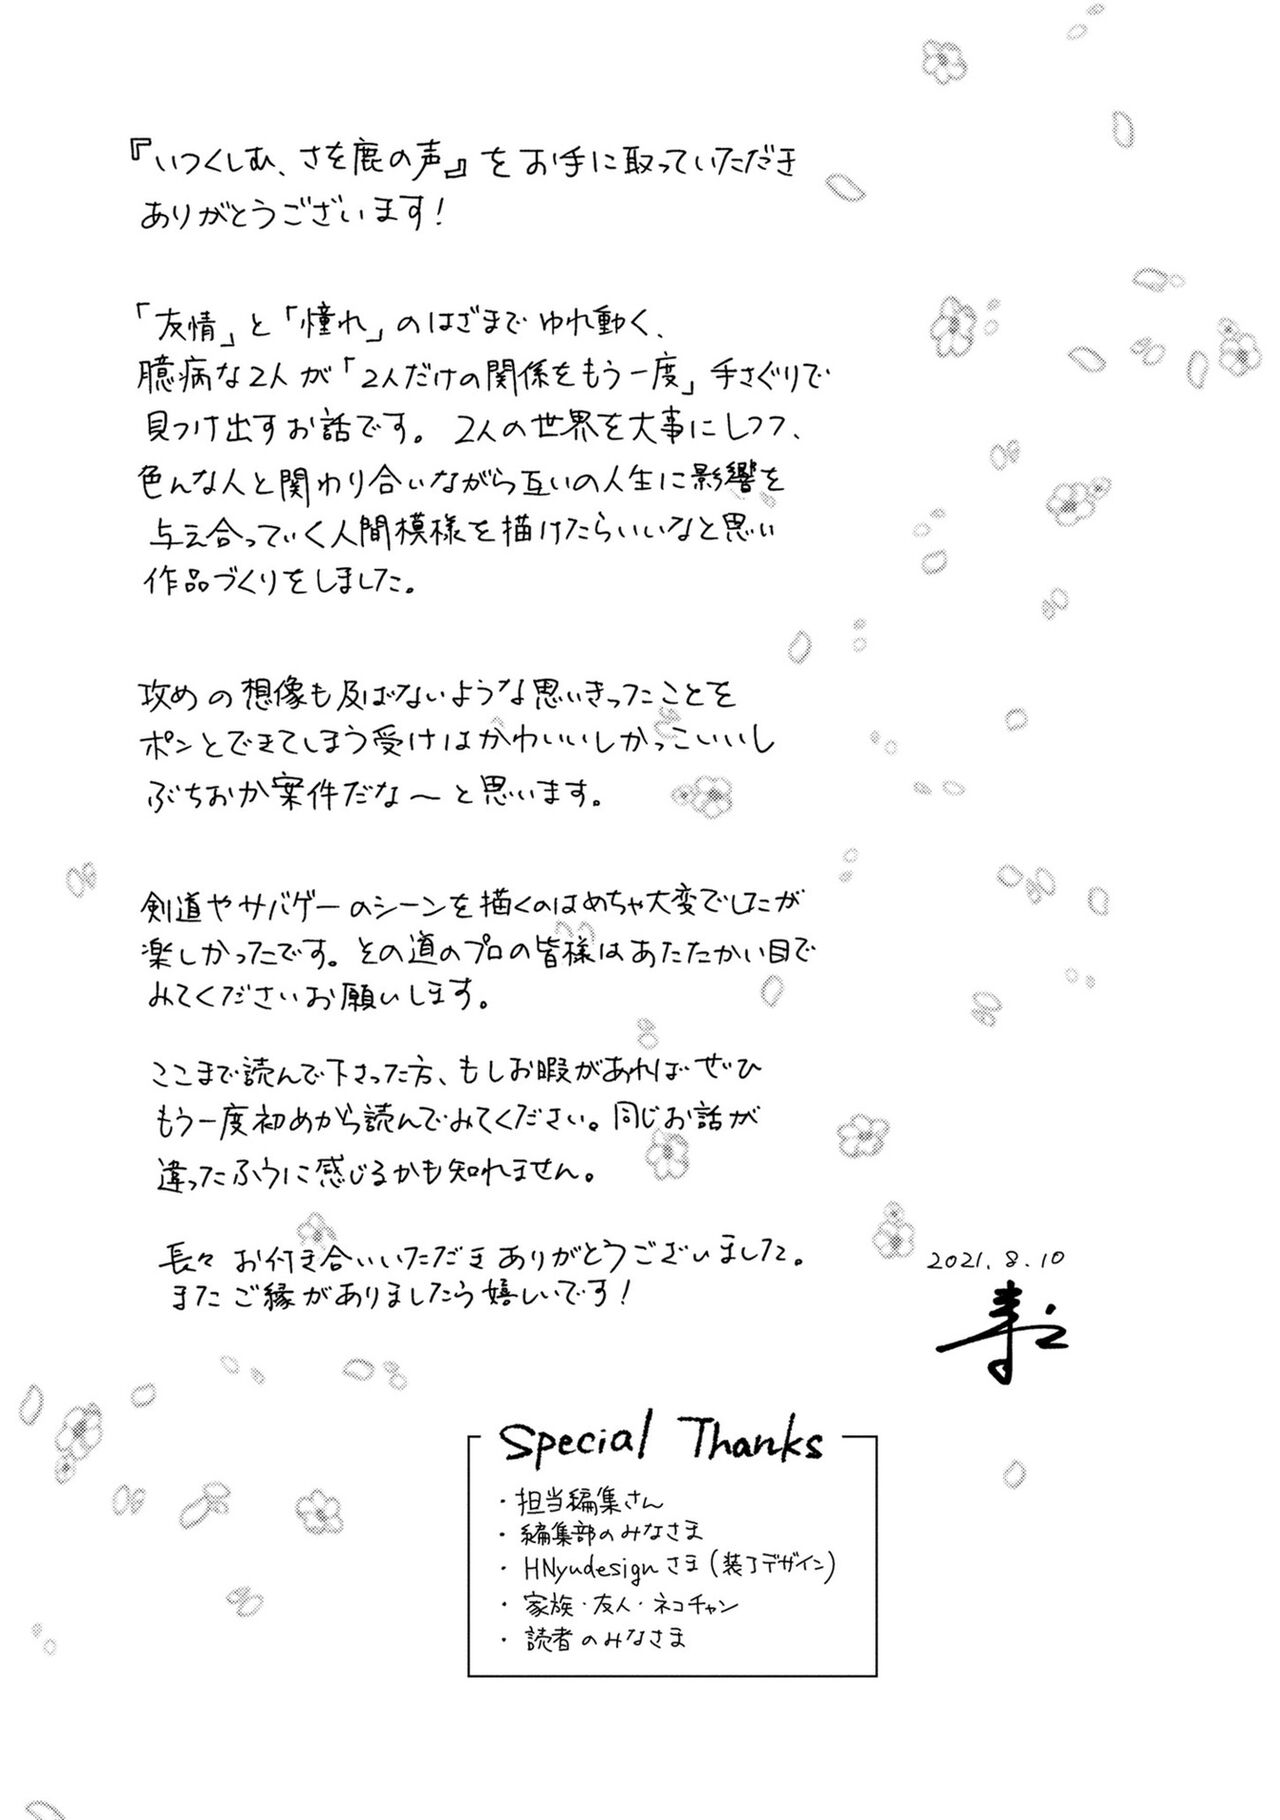 『いつくしむ、さを鹿の声』をお手に取っていただき
ありがとうございます!
「友情」と「憧れ」のはざまでゆれ動く、
臆病な2人が「2人だけの関係をもう一度」手さぐりで
見つけ出すお話です。2人の世界を大事にしつつ、
色んな人と関わり合いながら互いの人生に影響を
与え合っていく人間模様を描けたらいいなと思い
作品づくりをしました。
攻めの想像も及ばないような思いきったことを
ポンとできてしまう受けはかわいいしかっこいいし
ぶちおか案件だな〜と思います。
剣道やサバゲーのシーンを描くのはめちゃ大変でしたが
楽しかったです。その道のプロの皆様はあたたかい目で
みてくださいお願いします。
ここまで読んで下さった方、もしお暇があればぜひ
もう一度初めから読んでみてください。同じお話が
違ったふうに感じるかも知れません。
長々お付き合いいただきありがとうございました。
またご縁がありましたら嬉しいです!
2021.8.10
Special Thanks
・担当編集さん
・編集部のみなさま
・HNyudesignさま(装丁デザイン)
・家族・友人・ネコチャン
・読者のみなさま